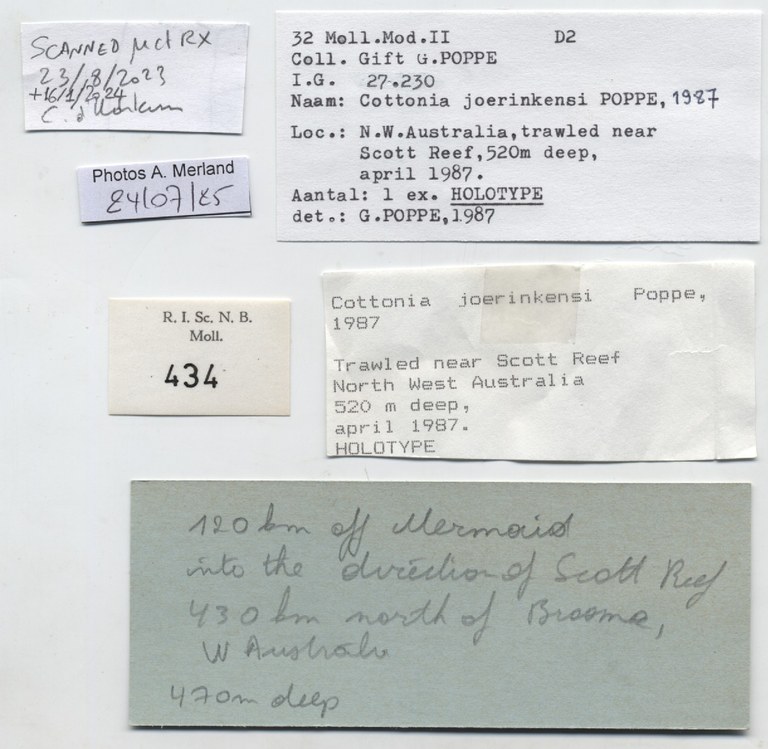 SCANNED µct RX
23/8/2023
+16/1/2024
32 Moll.Mod.II D2
Coll. Gift G.POPPE
I.G. 27.230
Naam: Cottonia joerinkensi POPPE, 1987
Loc.: N.W.Australia,trawled near
Scott Reef,520m deep,
april 1987.
Aantal: 1 ex. HOLOTYPE
det.: G.POPPE,1987
Photos A. Merland
24/07/25
R. I. Sc. N. B.
Moll.
434
Cottonia joerinkensi Poppe,
1987
Trawled near Scott Reef
North West Australia
520 m deep,
april 1987.
HOLOTYPE
120 km off Mermaid
into the direction of Scott Reef
430 km north of Broome,
W Australia
470m deep